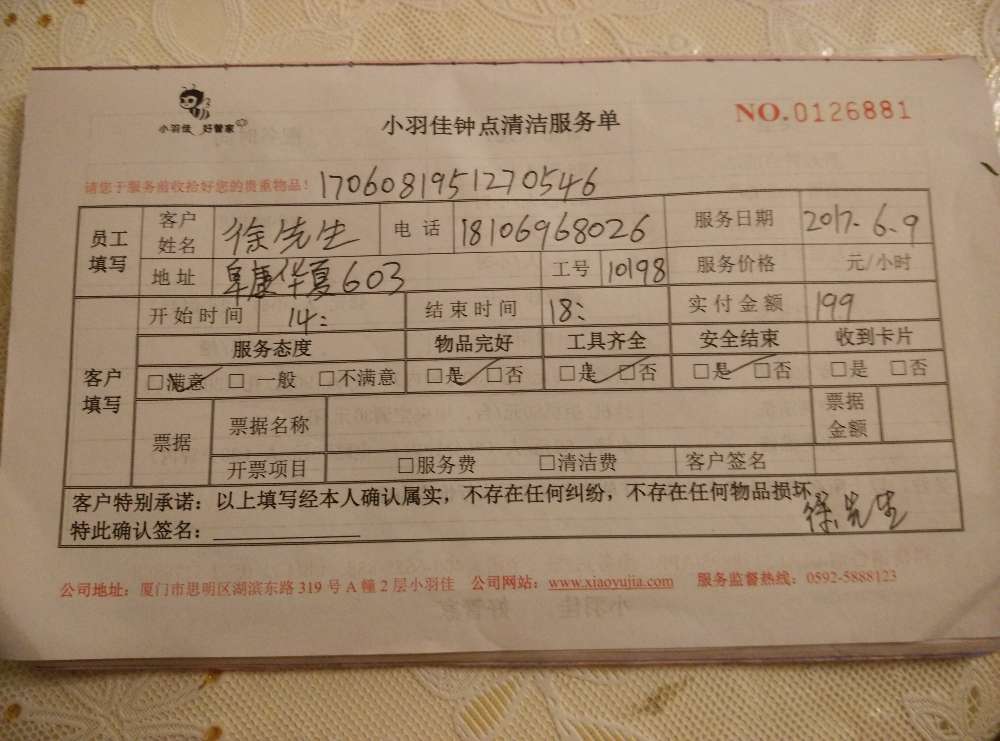 小羽佳 好管家
小羽佳钟点清洁服务单
NO.0126881
请您于服务前收拾好您的贵重物品! 1706081951270546
员工填写 客户姓名 徐先生 电话 18106968026 服务日期 2017.6.9
地址 阜康华夏603 工号 10198 服务价格 元/小时
客户填写 开始时间 14: 结束时间 18: 实付金额 199
服务态度 物品完好 工具齐全 安全结束 收到卡片
□满意 □一般 □不满意 □是 □否 □是 □否 □是 □否 □是 □否
票据 票据名称 票据金额
开票项目 □服务费 □清洁费 客户签名
客户特别承诺：以上填写经本人确认属实，不存在任何纠纷，不存在任何物品损坏。
特此确认签名： 徐先生
公司地址：厦门市思明区湖滨东路 319 号 A 幢 2 层小羽佳 公司网站：www.xiaoyujia.com 服务监督热线：0592-5888123